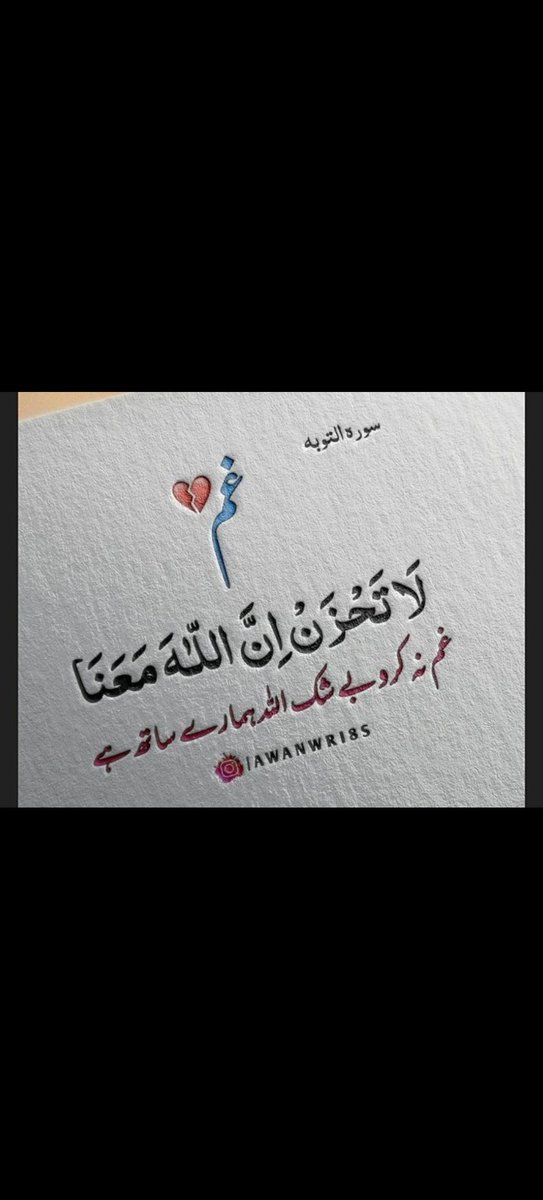 سورہ التوبہ
غم
لَا تَحْزَنْ اِنَّ اللّٰهَ مَعَنَا
غم نہ کرو بے شک اللہ ہمارے ساتھ ہے
/AWANWRI8S